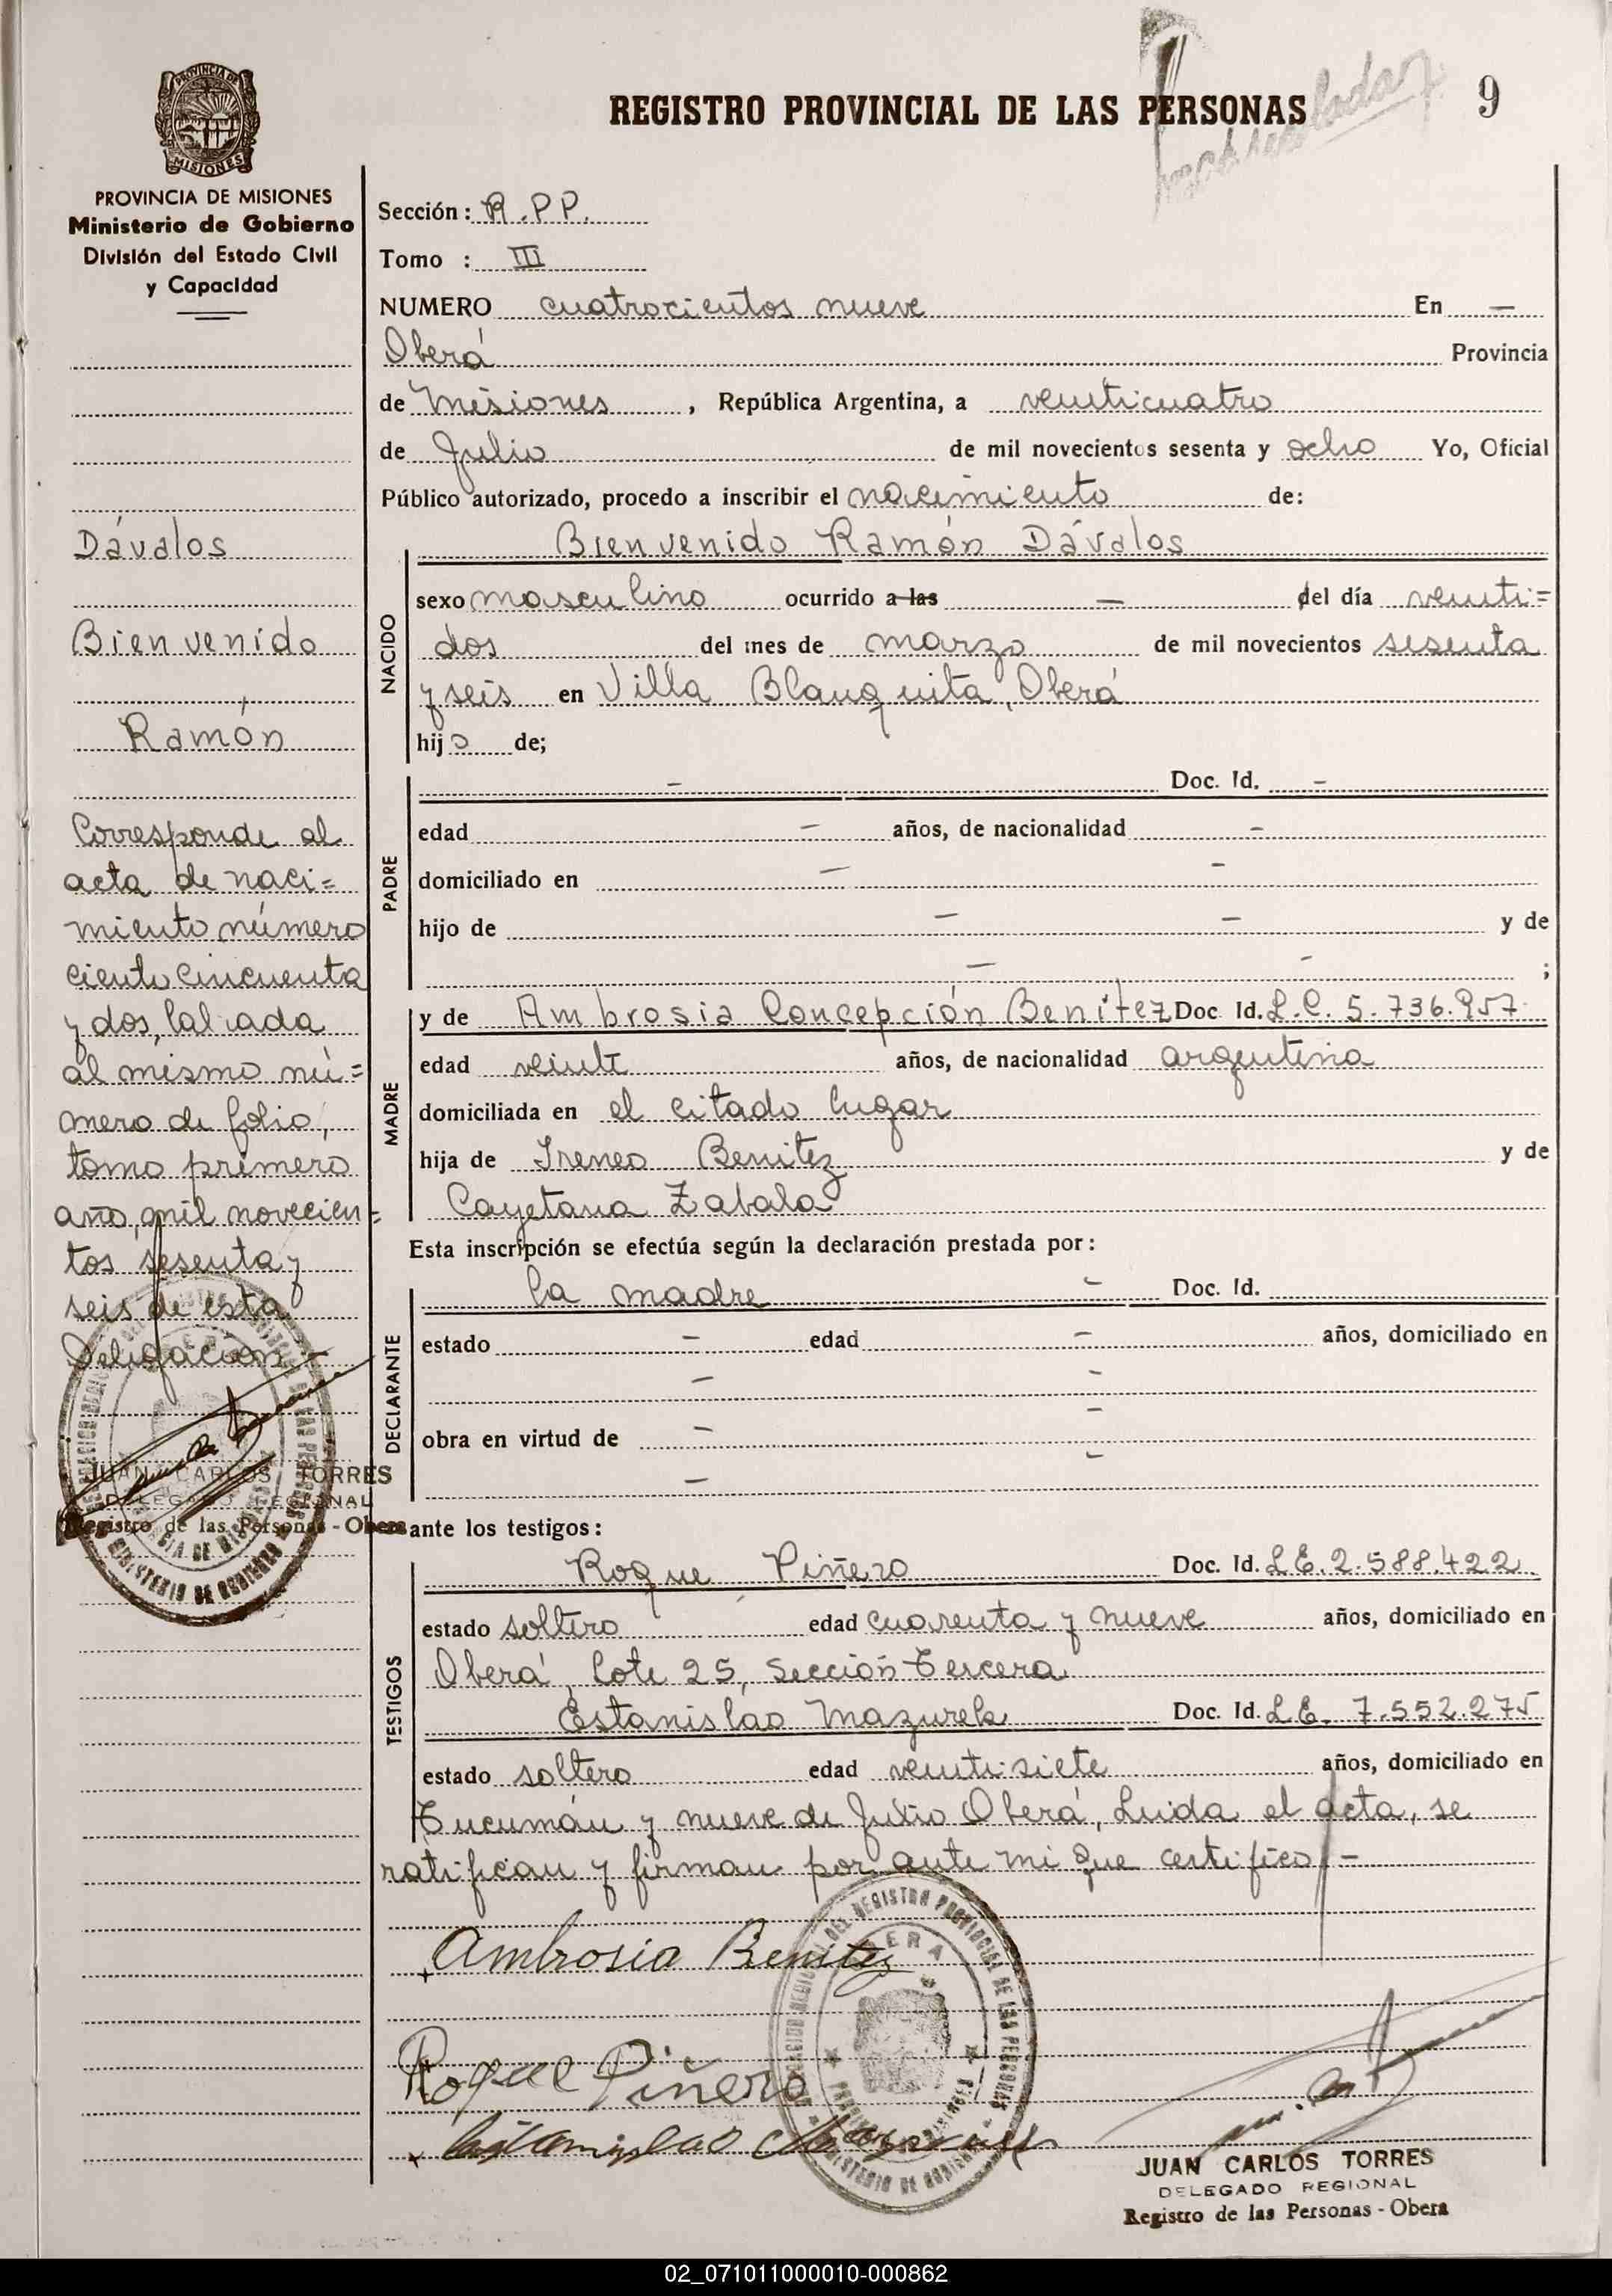 REGISTRO PROVINCIAL DE LAS PERSONAS
9
PROVINCIA DE MISIONES
MISIONES
PROVINCIA DE MISIONES
Ministerio de Gobierno
División del Estado Civil
y Capacidad
Dávalos
Bienvenido
Ramón
Corresponde al
acta de naci=
miento número
ciento cincuenta
y dos, labrada
al mismo nú=
mero de folio,
tomo primero
año, mil novecien=
tos sesenta y
seis de esta
Delegación.-
JUAN CARLOS TORRES
DELEGADO REGIONAL
Registro de las Personas - Obera
Sección: R.PP.
Tomo : III
NUMERO cuatrocientos nueve En —
Oberá Provincia
de Misiones, República Argentina, a veinticuatro
de Julio de mil novecientos sesenta y ocho Yo, Oficial
Público autorizado, procedo a inscribir el nacimiento de:
NACIDO
Bienvenido Ramón Dávalos
sexo masculino ocurrido a las — del día veinti=
dos del mes de marzo de mil novecientos sesenta
y seis en Villa Blanquita, Oberá
hijo de;
PADRE
— Doc. Id. —
edad — años, de nacionalidad —
domiciliado en — —
hijo de — — y de
— - ;
MADRE
y de Ambrosia Concepción Benítez Doc. Id. L.C. 5.736.957
edad veinte años, de nacionalidad argentina
domiciliada en el citado lugar
hija de Ireneo Benitez y de
Cayetana Zabala
Esta inscripción se efectúa según la declaración prestada por:
DECLARANTE
la madre - Doc. Id.
estado — edad — años, domiciliado en
— -
obra en virtud de — -
— -
ante los testigos:
TESTIGOS
Roque Piñero Doc. Id. L.E. 2.588.422
estado soltero edad cuarenta y nueve años, domiciliado en
Oberá, lote 25, Sección Tercera
Estanislao Mazurek Doc. Id. L.E. 7.552.275
estado soltero edad veintisiete años, domiciliado en
Tucumán y nueve de Julio Oberá, Leida el acta, se
ratifican y firman por ante mi que certifico.-
Ambrosia Benitez
Roque Piñero
Estanislao Mazurek
JUAN CARLOS TORRES
DELEGADO REGIONAL
Registro de las Personas - Obera
02_071011000010-000862